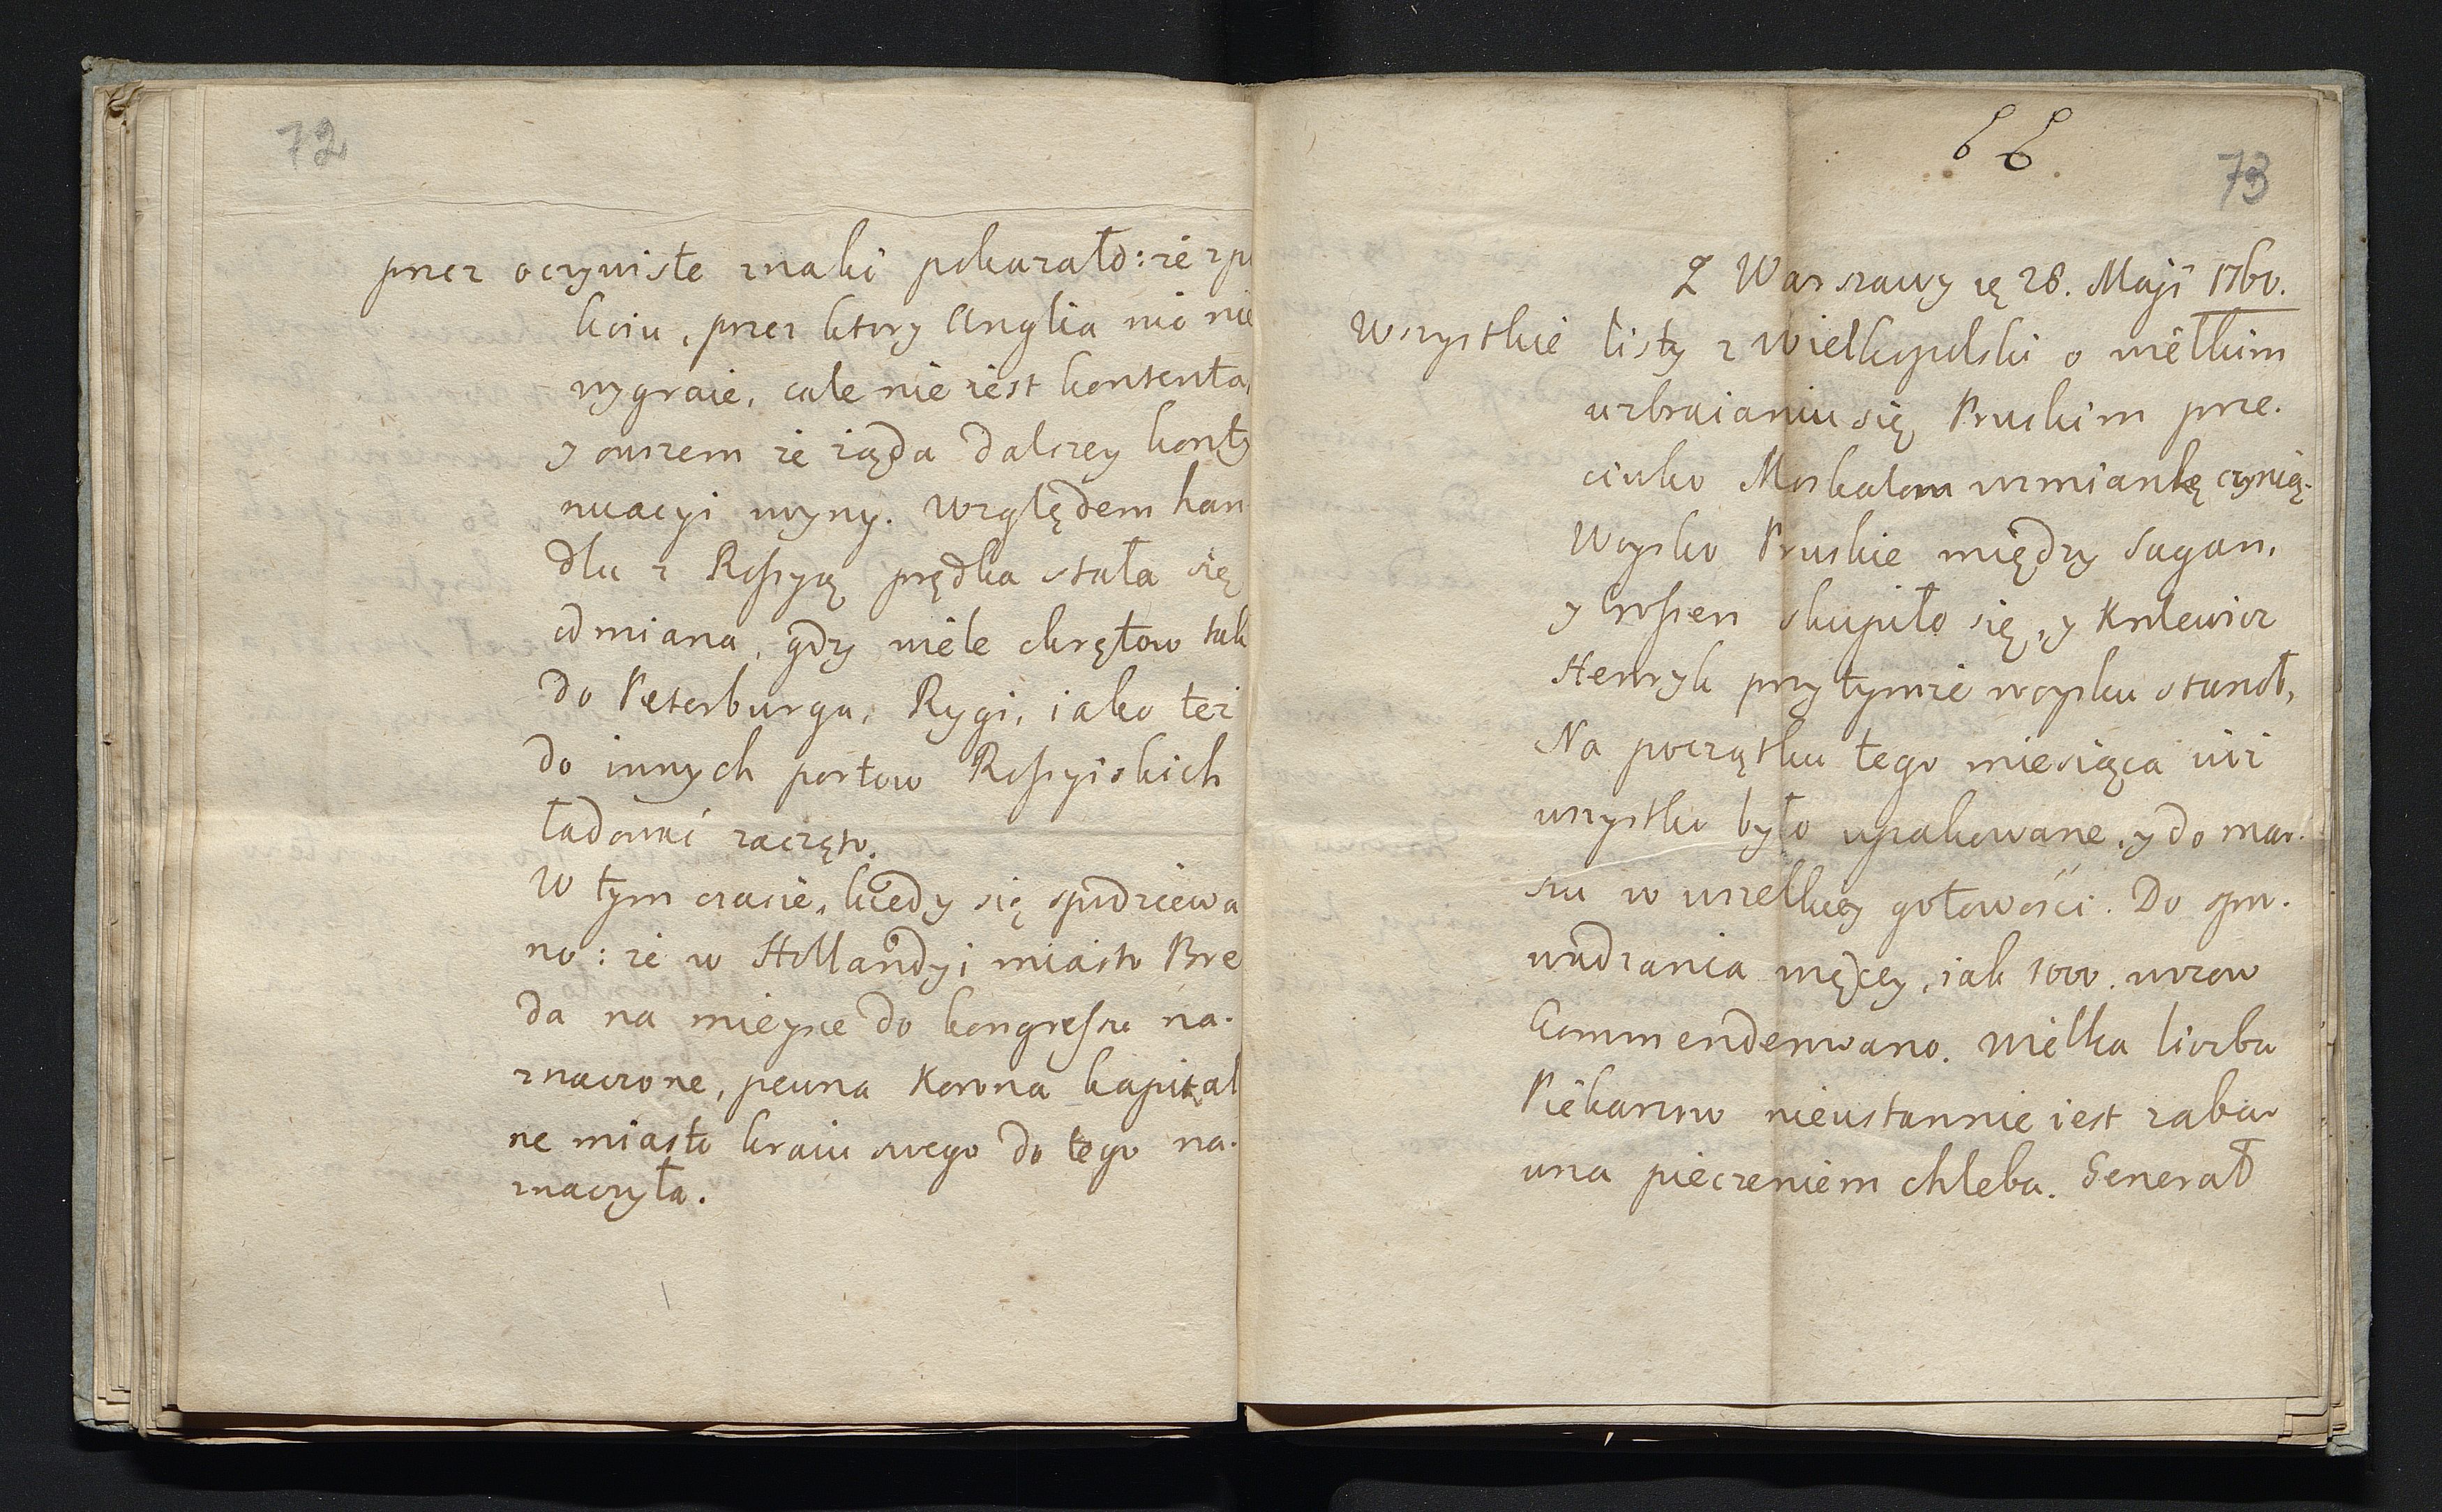 72
przez oczywiste znaki pokazało: że z po
koiu, przez ktory Anglia nic nie
wygraie, cale nie iest kontenta,
y owszem że żąda dalszey konty
nuacyi woyny. Względem han
dlu z Rossyą prędka stała się
odmiana, gdy wiele okrętow tak
do Petersburga, Rygi, iako też
do innych portow Rossyiskich
ładować zaczęto.
W tym czasie, kiedy się spodziewa
no: że w Hollandyi miasto Bre
da na mieysce do kongressu na-
znaczone, pewna Korona kapital
ne miasto kraiu swego do tego na-
znaczyła.
66.
73
Z Warszawy 28. Maji 1760.
Wszystkie listy z Wielkopolski o wielkim
uzbraianiu się Pruskim prze-
ciwko Moskalom wzmiankę czynią.
Woysko Pruskie między Sagan,
y Crossen skupiło się, y Krolewicz
Henryk przy tymże woysku stanoł,
Na początku tego miesiąca iuż
wszystko było upakowane, y do mar-
szu w wszelkiey gotowości. Do spro-
wadzania więcey, iak 1000. wozow
Commenderowano. Wielka liczba
Piekarzow nieustannie iest zaba-
wna pieczeniem chleba. Generał